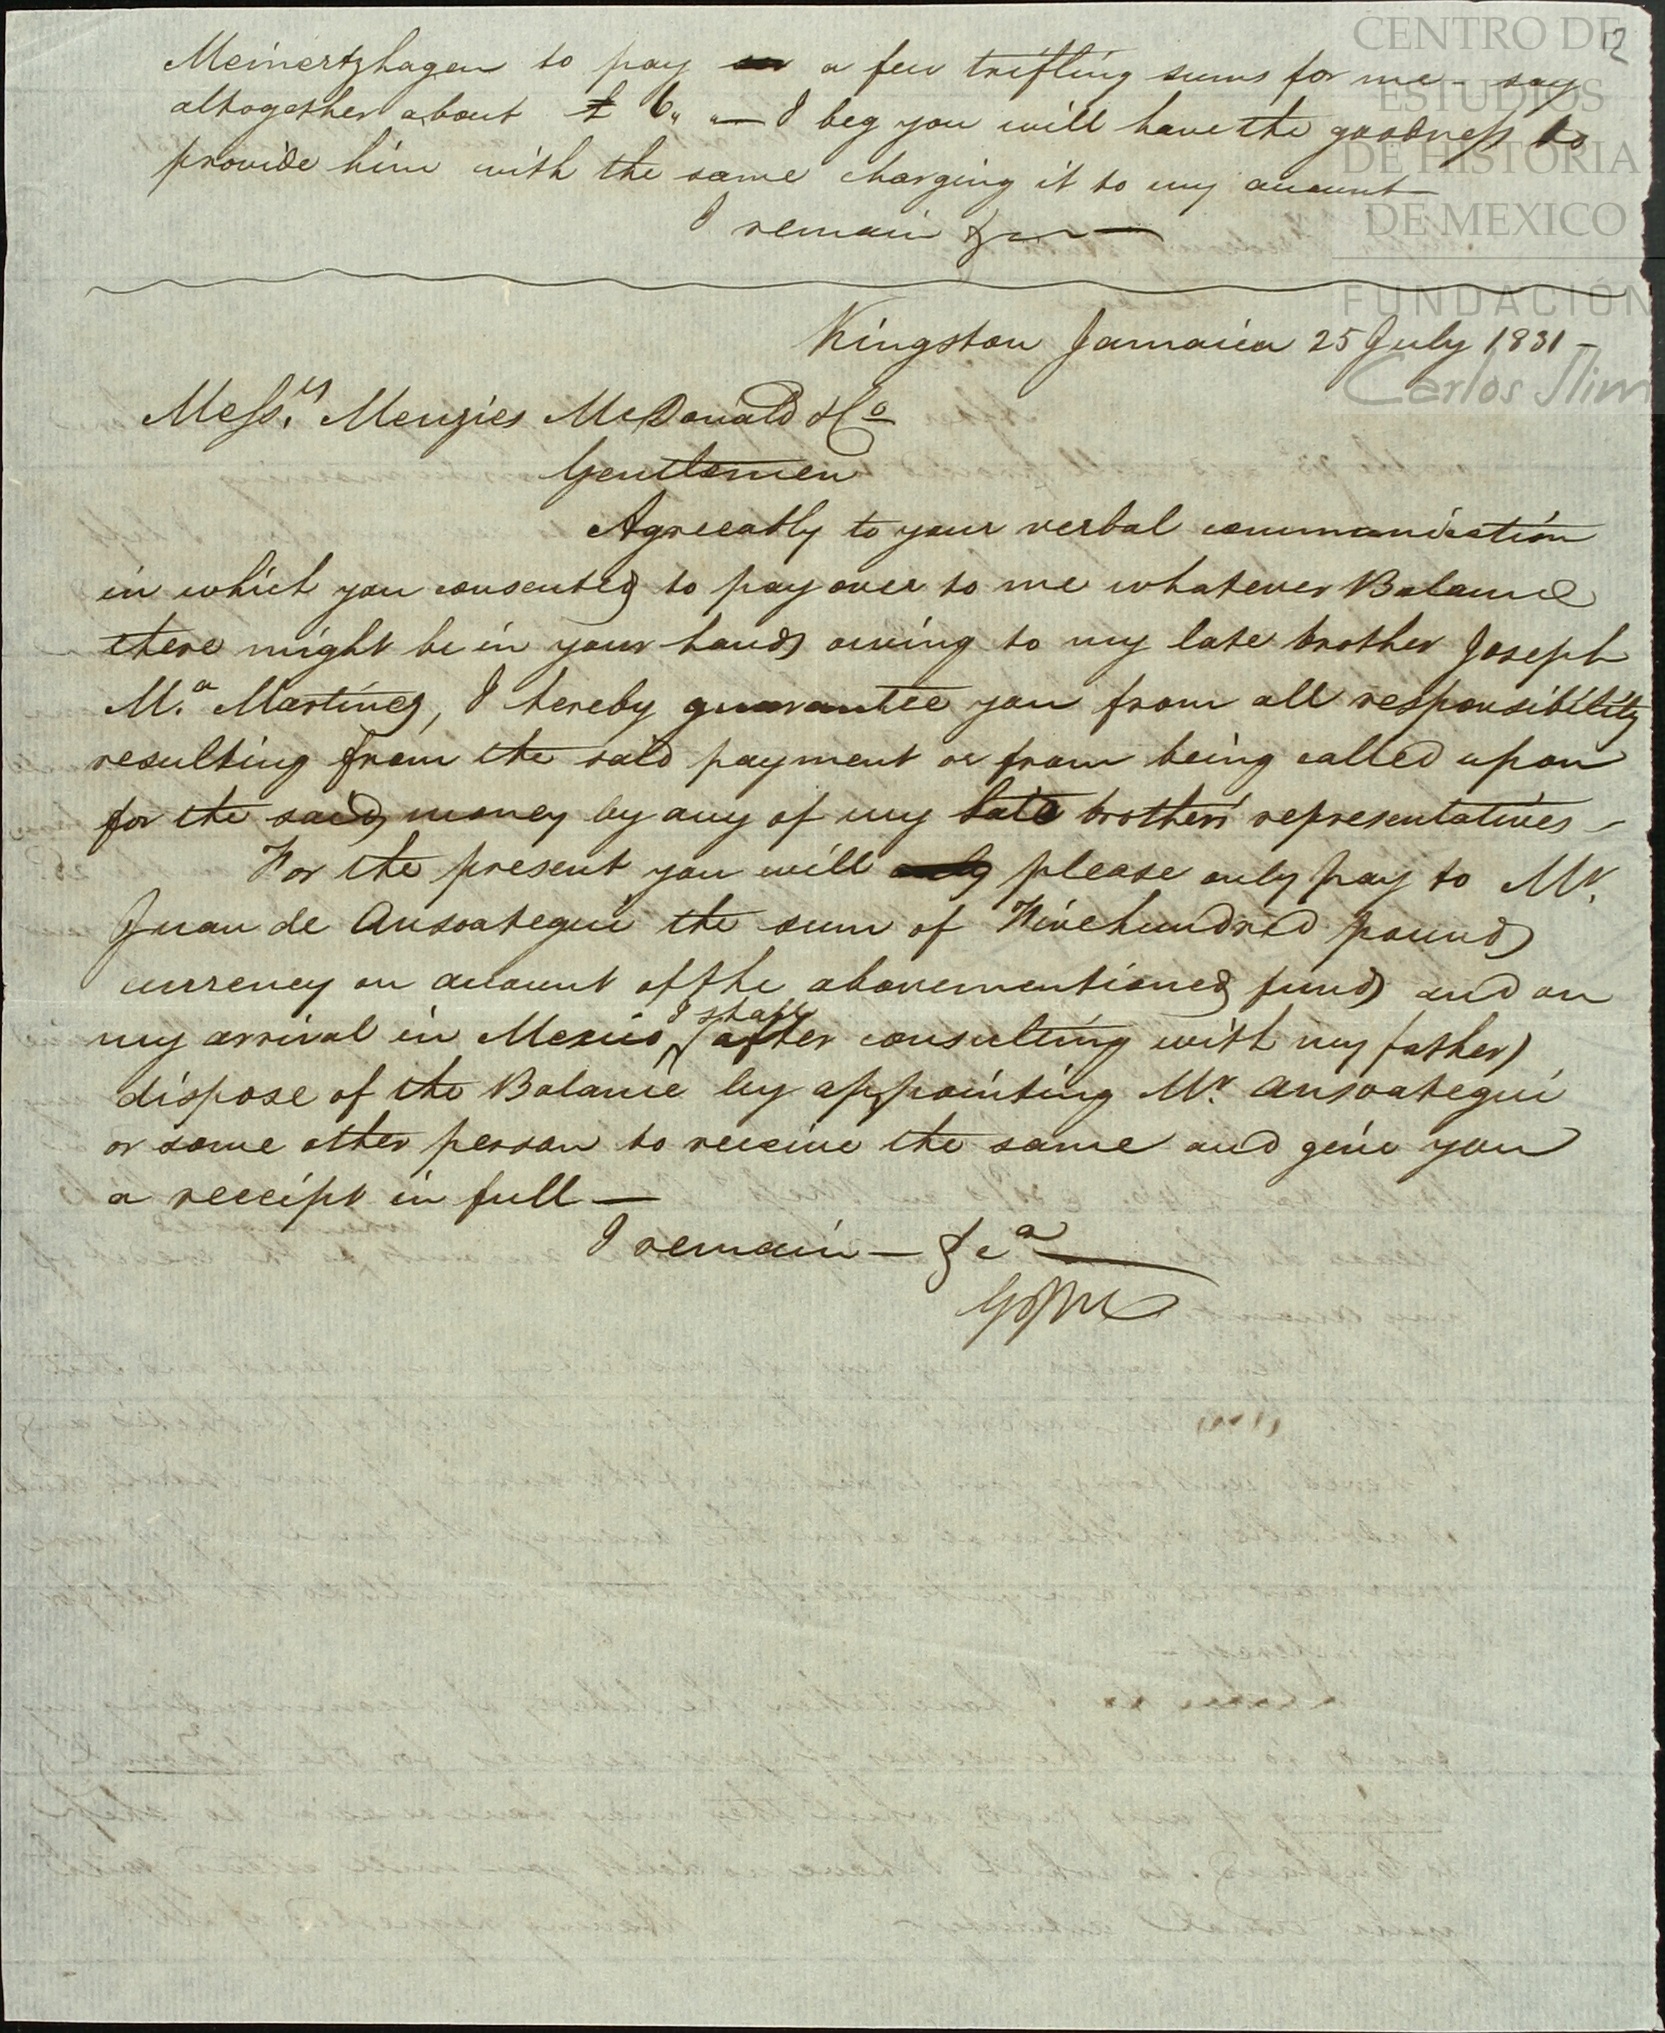 12
CENTRO DE
ESTUDIOS
DE HISTORIA
DE MEXICO
FUNDACIÓN
Carlos Slim
Meinertzhagen to pay a few trifling sums for me - say
altogether about £ 6 " " — I beg you will have the goodness to
provide him with the same charging it to my account
I remain &c —
Kingston Jamaica 25 July 1831 -
Messrs. Menzies McDonald & Co
Gentlemen
Agreeably to your verbal communication
in which you consented to pay over to me whatever Balance
there might be in your hands owing to my late brother Joseph
M.a Martinez, I hereby guarantee you from all responsibility
resulting from the said payment or from being called upon
for the said money by any of my late brothers representatives -
For the present you will only please only pay to Mr.
Juan de Ansoategui the sum of Five hundred pounds
currency on account of the abovementioned funds and on
my arrival in Mexico, I shall (after consulting with my father)
dispose of the Balance by appointing Mr. Ansoategui
or some other person to receive the same and give you
a receipt in full —
I remain — &ca